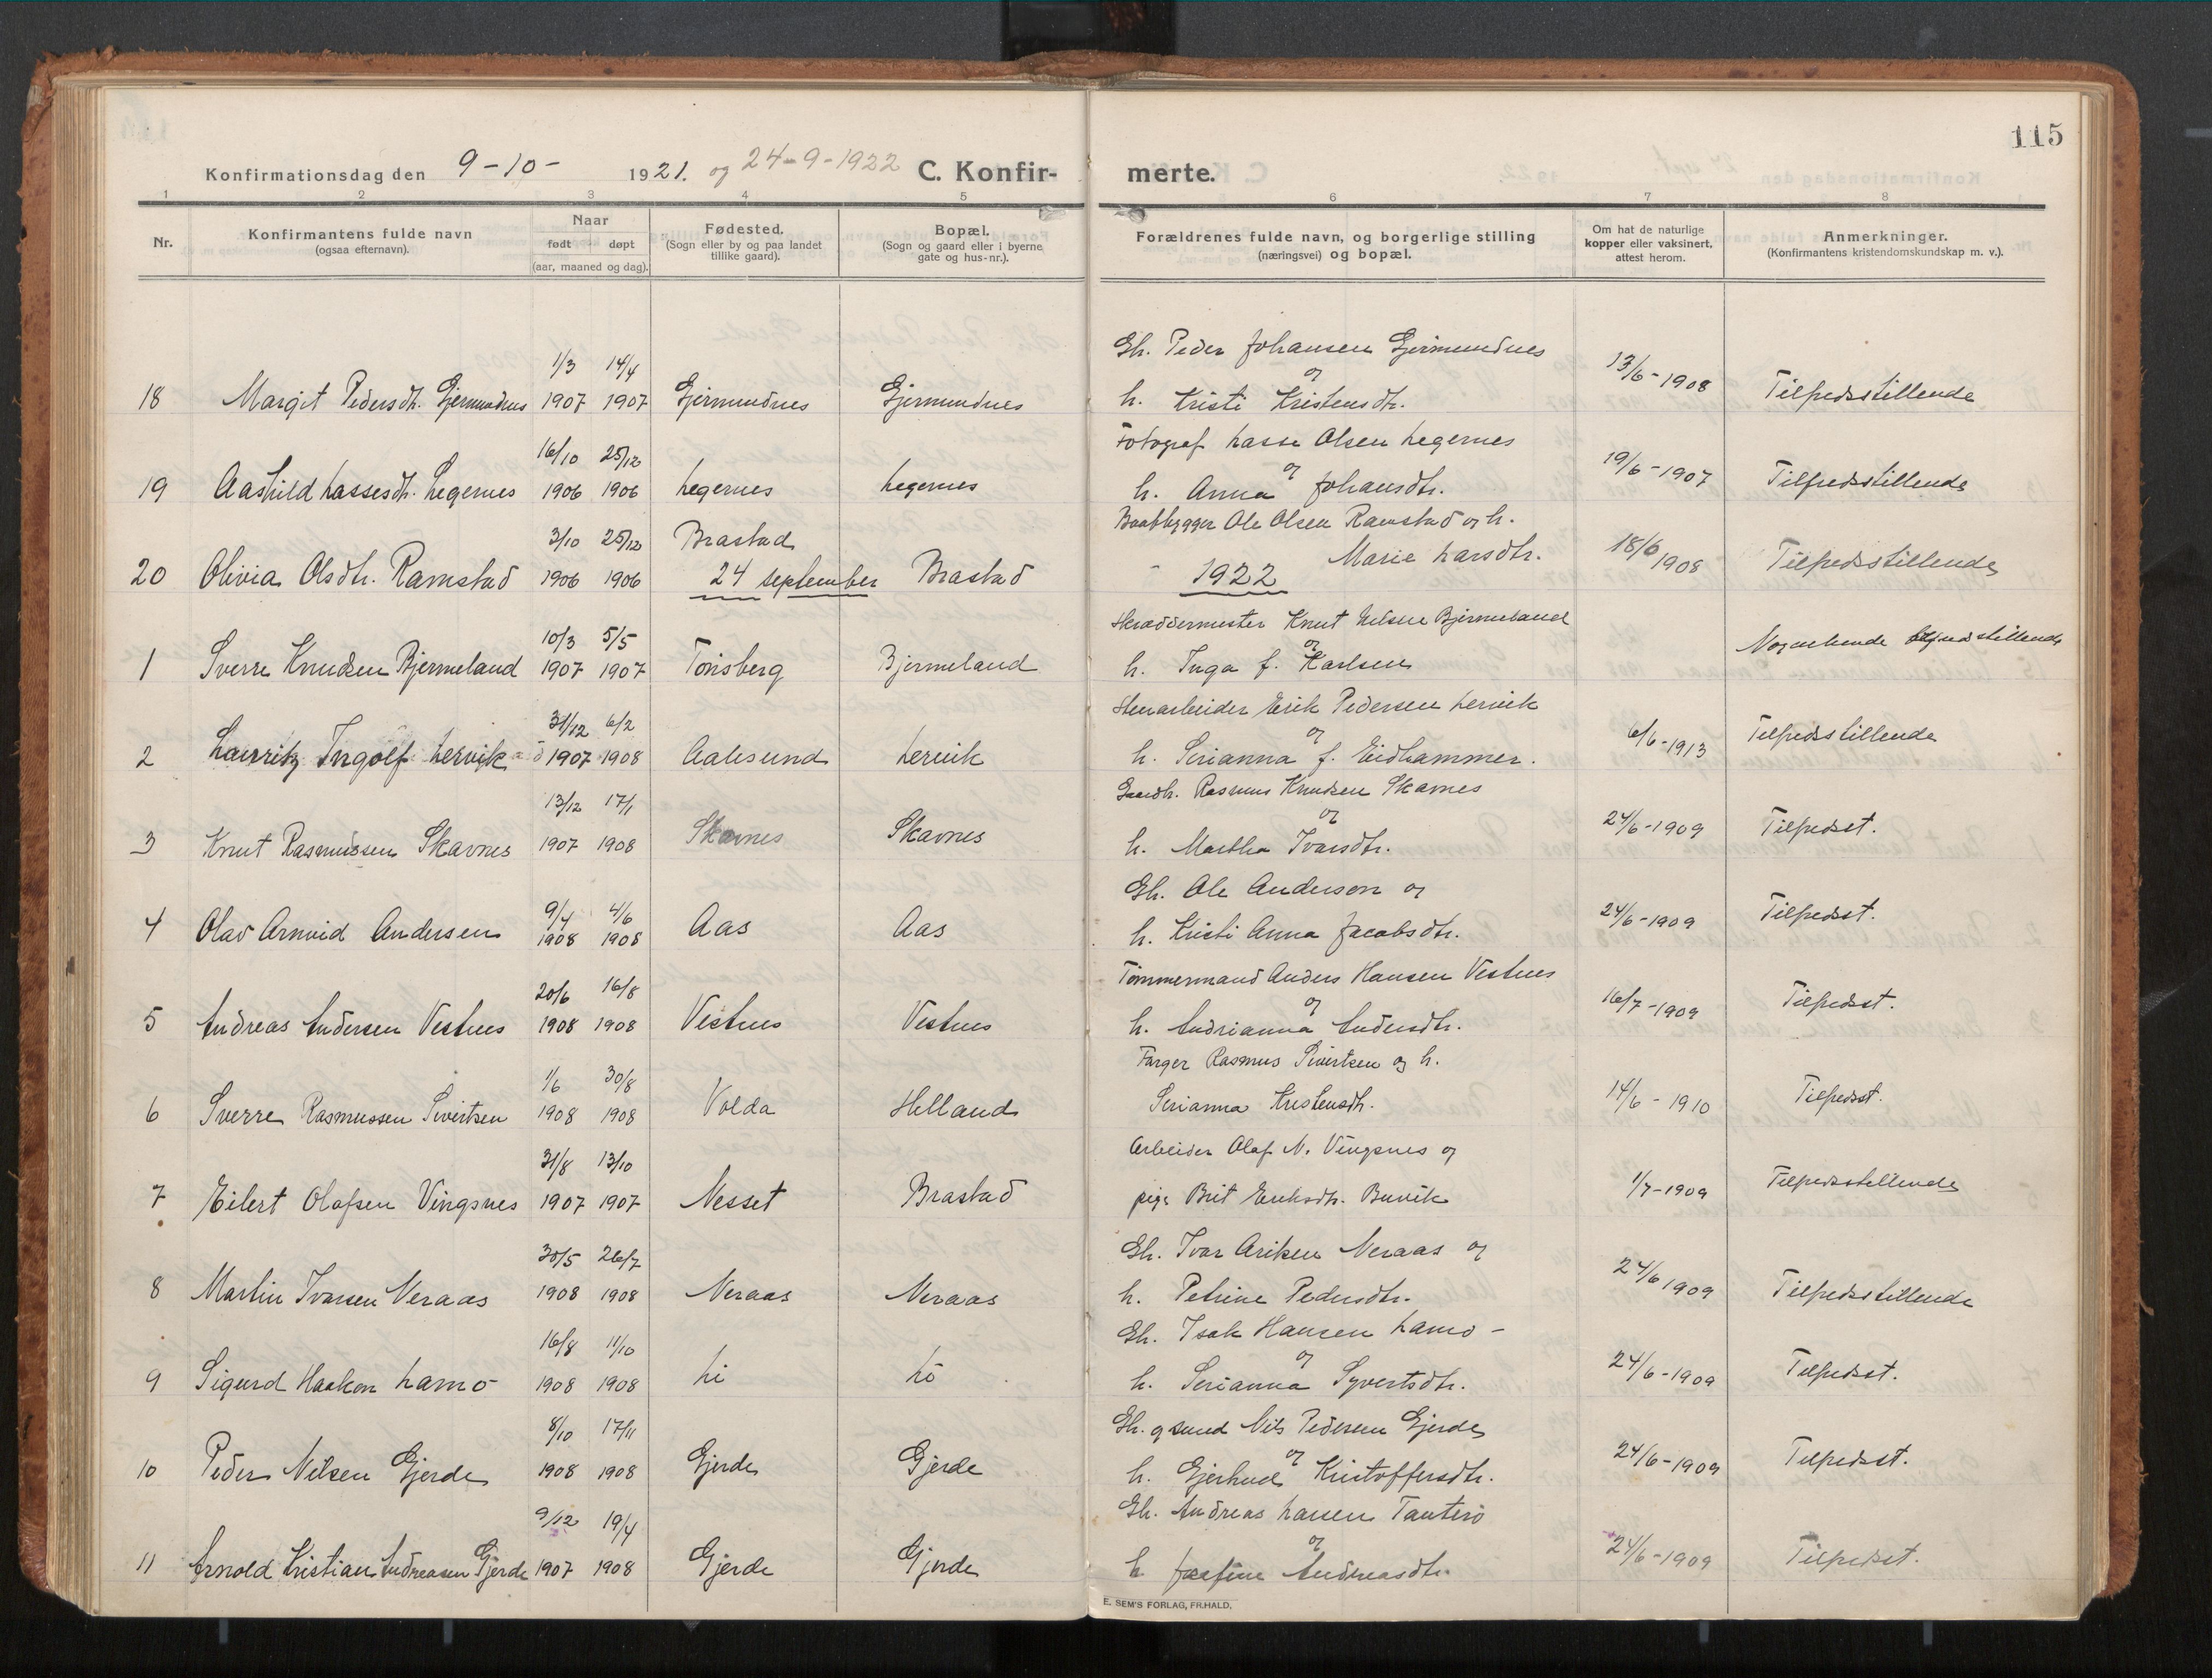 115
Konfirmationsdag den 9-10- 1921. og 24-9-1922 C. Konfir- merte.
1 2 3 4 5 6 7 8
Nr.
Konfirmantens fulde navn
(ogsaa efternavn).
Naar
født døpt
(aar, maaned og dag).
Fødested.
(Sogn eller by og paa landet
tillike gaard).
Bopæl.
(Sogn og gaard eller i byerne
gate og hus-nr.).
Forældrenes fulde navn, og borgerlige stilling
(næringsvei) og bopæl.
Om hat de naturlige
kopper eller vaksinert,
attest herom.
Anmerkninger.
(Konfirmantens kristendomskundskap m. v.).
1/3 14/4 Gh. Peder Johansen Gjermundnes
18 Margit Pedersdtr. Gjermundnes 1907 1907 Gjermundnes Gjermundnes og h. Kristi Kristensdtr. 13/6-1908 Tilfredsstillende
16/10 25/12 Fotograf Lasse Olsen Legernes
19 Aashild Lassesdtr. Legernes 1906 1906 Legernes Legernes og h. Anna Johansdtr. 19/6-1907 Tilfredsstillende
3/10 25/12 Brastad Baatbygger Ole Olsen Ramstad og h.
20 Olivia Olsdtr. Ramstad 1906 1906 Brastad Marie Larsdtr. 18/6 1908 Tilfredsstillende
24 september 1922
10/3 5/5 Skræddermester Knut Nilsen Bjermeland
1 Sverre Knudsen Bjermeland 1907 1907 Tønsberg Bjermeland og h. Inga f. Karlsen Nogenlunde tilfredsstillende
31/12 6/2 Stenarbeider Erik Pedersen Lervik
2 Lauritz Ingolf Lervik 1907 1908 Aalesund Lervik og h. Serianna f. Eidhammer. 6/6-1913 Tilfredsstillende
13/12 17/1 Gaardbr. Rasmus Knudsen Skavnes
3 Knut Rasmussen Skavnes 1907 1908 Skavnes Skavnes og h. Martha Ivarsdtr. 24/6-1909 Tilfredsst.
9/4 4/6 Gh. Ole Anderson og
4 Olav Arnvid Andersen 1908 1908 Aas Aas h. Kristi Anna Jacobsdtr. 24/6-1909 Tilfredsst.
20/6 16/8 Tømmermand Anders Hansen Vestnes
5 Andreas Andersen Vestnes 1908 1908 Vestnes Vestnes og h. Andrianna Andersdtr. 16/7-1909 Tilfredsst.
1/6 30/8 Farger Rasmus Sivertsen og h.
6 Sverre Rasmussen Sivertsen 1908 1908 Volda Helland Serianna Kristensdtr. 14/6-1910 Tilfredsst.
31/8 13/10 Arbeider Olaf N. Vingsnes og
7 Eilert Olafsen Vingsnes 1907 1907 Nesset Brastad pige Brit Eriksdtr. Buvik 1/7-1909 Tilfredsstillende
30/5 26/7 Gh. Ivar Ariksen Neraas og
8 Martin Ivarsen Neraas 1908 1908 Neraas Neraas h. Petrine Pedersdtr. 24/6 1909 Tilfredsstillende
16/8 11/10 Gh. Isak Hansen Lamo -
9 Sigurd Haakon Lamo 1908 1908 Li Lo og h. Serianna Syvertsdtr. 24/6-1909 Tilfredsst.
8/10 17/11 Gh. Nils Pedersen Gjerde
10 Peder Nilsen Gjerde 1908 1908 Gjerde Gjerde og h. Gjertrud Kristoffersdtr. 24/6-1909 Tilfredsst.
9/12 19/4 Gh. Andreas Larsen Tauterø
11 Arnold Kristian Andreasen Gjerde 1907 1908 Gjerde Gjerde og h. Josefine Andreasdtr. 24/6-1909 Tilfredsst.
E. SEM'S FORLAG, FR.HALD.